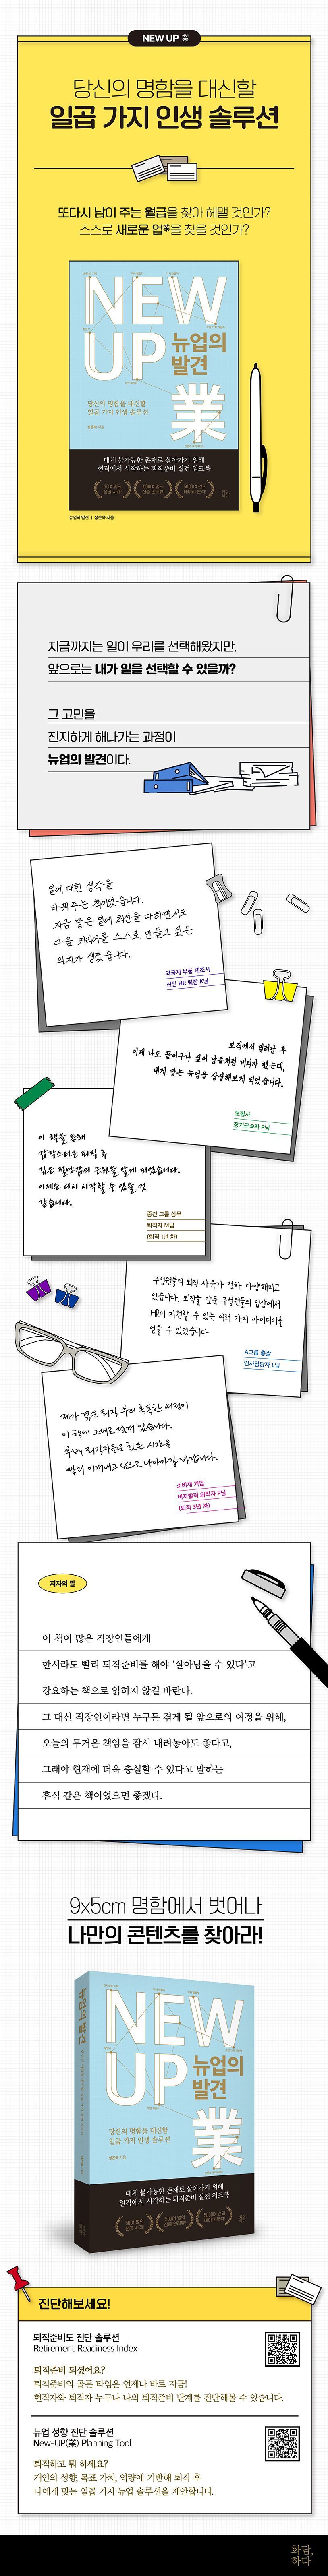 NEW UP 業
당신의 명함을 대신할
일곱 가지 인생 솔루션
또다시 남이 주는 월급을 찾아 헤맬 것인가?
스스로 새로운 업業을 찾을 것인가?
NEW
UP
뉴업의
발견
業
당신의 명함을 대신할
일곱 가지 인생 솔루션
대체 불가능한 존재로 살아가기 위해
현직에서 시작하는 퇴직준비 실전 워크북
뉴업의 발견 | 설은숙 지음
지금까지는 일이 우리를 선택해왔지만,
앞으로는 내가 일을 선택할 수 있을까?
그 고민을
진지하게 해나가는 과정이
뉴업의 발견이다.
일에 대한 생각을
바꿔주는 책이었습니다.
지금 맡은 일에 최선을 다하면서도
다음 커리어를 스스로 만들고 싶은
의지가 생겼습니다.
외국계 부품 제조사
신임 HR 팀장 K님
보직에서 밀려난 후
이제 나도 끝이구나 싶어 남들처럼 버티자 했는데,
내게 맞는 뉴업을 상상해보게 되었습니다.
보험사
장기근속자 P님
이 책을 통해
갑작스러운 퇴직 후
깊은 절망감의 근원을 알게 되었습니다.
이제는 다시 시작할 수 있을 것
같습니다.
중견 그룹 상무
퇴직자 M님
(퇴직 1년 차)
구성원들의 퇴직 사유가 점차 다양해지고
있습니다. 퇴직을 앞둔 구성원들의 입장에서
HR이 지원할 수 있는 여러 가지 아이디어를
얻을 수 있었습니다
A그룹 총괄
인사담당자 L님
제가 겪은 퇴직 후의 혹독한 여정이
이 책에 그대로 담겨 있습니다.
후배 퇴직자들은 힘든 시간을
빨리 이겨내고 앞으로 나아가길 바랍니다.
소비재 기업
비자발적 퇴직자 P님
(퇴직 3년 차)
저자의 말
이 책이 많은 직장인들에게
한시라도 빨리 퇴직준비를 해야 ‘살아남을 수 있다’고
강요하는 책으로 읽히지 않길 바란다.
그 대신 직장인이라면 누구든 겪게 될 앞으로의 여정을 위해,
오늘의 무거운 책임을 잠시 내려놓아도 좋다고,
그래야 현재에 더욱 충실할 수 있다고 말하는
휴식 같은 책이었으면 좋겠다.
9x5cm 명함에서 벗어나
나만의 콘텐츠를 찾아라!
뉴업의 발견
NEW
UP
뉴업의
발견
業
당신의 명함을 대신할
일곱 가지 인생 솔루션
대체 불가능한 존재로 살아가기 위해
현직에서 시작하는 퇴직준비 실전 워크북
진단해보세요!
퇴직준비도 진단 솔루션
Retirement Readiness Index
퇴직준비 되셨어요?
퇴직준비의 골든 타임은 언제나 바로 지금!
현직자와 퇴직자 누구나 나의 퇴직준비 단계를 진단해볼 수 있습니다.
뉴업 성향 진단 솔루션
New-UP(業) Planning Tool
퇴직하고 뭐 하세요?
개인의 성향, 목표 가치, 역량에 기반해 퇴직 후
나에게 맞는 일곱 가지 뉴업 솔루션을 제안합니다.
화담,
하다